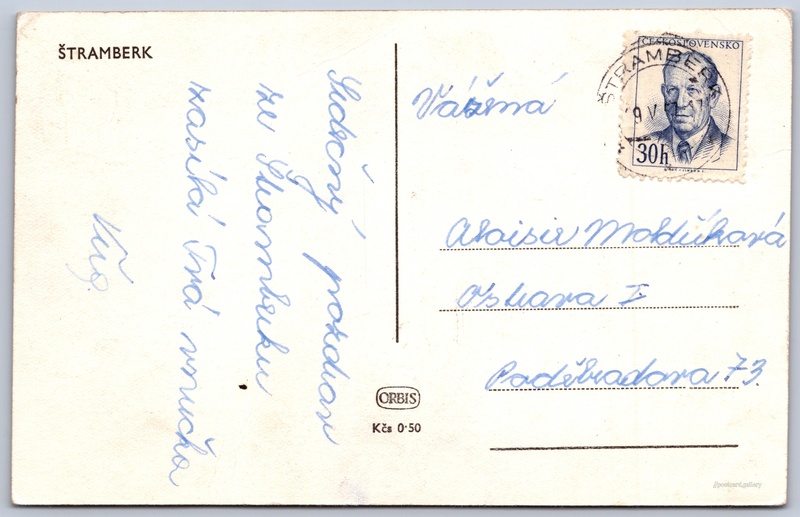 ŠTRAMBERK
Srdečný pozdrav
ze Štramberku
zasílá Tvá vnučka
Vážená
Aloisie Moldříková
Ostrava I
Poděbradova 73.
ČESKOSLOVENSKO
30h
ŠTRAMBERK
ORBIS
Kčs 0·50